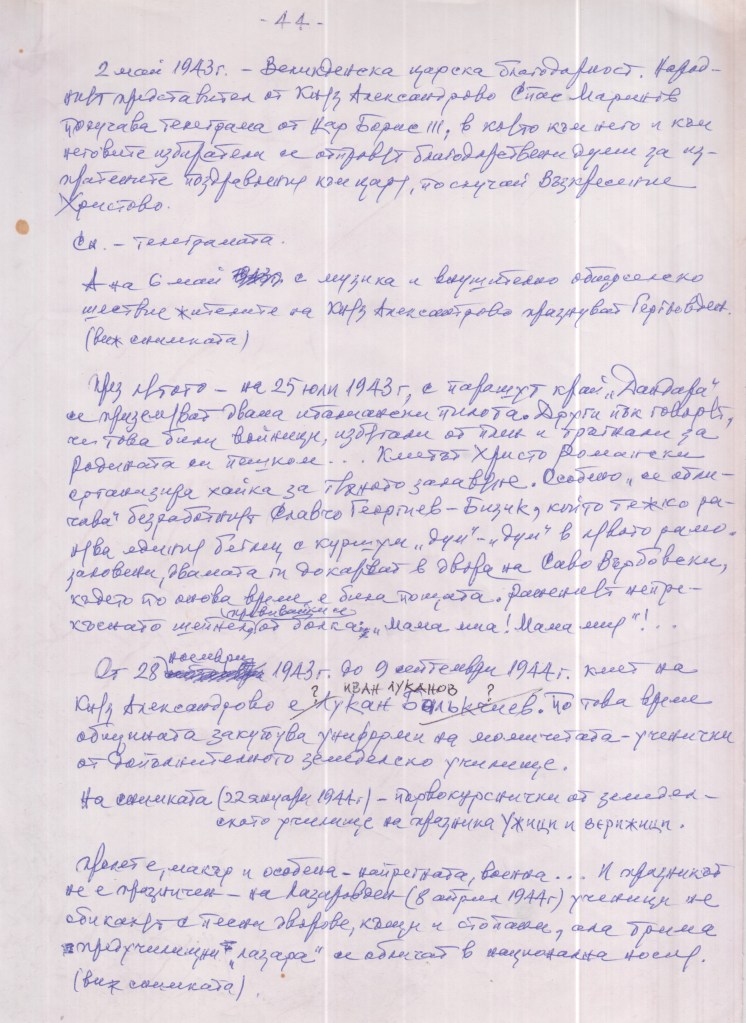 - 44 -
2 май 1943 г. – Великденска царска благодарност. Народ-
ният представител от Княз Александрово Спас Маринов
получава телеграма от Цар Борис III, в която към него и към
неговите избиратели се отправят благодарствени думи за из-
пратените поздравления към царя, по случай Възкресение
Христово.
Сн. – телеграмата.
А на 6 май с музика и внушително общоселско
шествие жителите на Княз Александрово празнуват Гергьовден.
(виж снимката)
През лятото – на 25 юли 1943 г, с парашут край „Дандара"
се приземяват двама италиански пилота. Други пък говорят,
че това били войници, избягали от плен и тръгнали за
родината си пешком... Кметът Христо Романски
организира хайка за тяхното залавяне. Особено „се отли-
чава" безработният Славчо Георгиев – Бизик, който тежко ра-
нява единия беглец с куршум „дум"-„дум" в лявото рамо.
Заловени, двамата ги докарват в двора на Саво Върбовски,
където по онова време е била пощата. Раненият непре-
превивайки се
къснато от болка: „Мама миа! Мама миа"!..
ноември
От 28 1943 г. до 9 септември 1944 г. кмет на
? ИВАН ЛУКАНОВ ?
Княз Александрово е Лукан. По това време
общината закупува униформи на момичетата – ученички
от допълнителното земеделско училище.
На снимката (22 януари 1944 г) – първокурснички от земедел-
ското училище на празника Ужици и верижици.
Пролет е, макар и особена – напрегната, военна... И празникът
не е празничен – на Лазаровден (8 април 1944 г) ученици не
обикалят с песни дворове, къщи и стопани, ала трима
предучилищни „лазара" се обличат в национална носия.
(виж снимката).